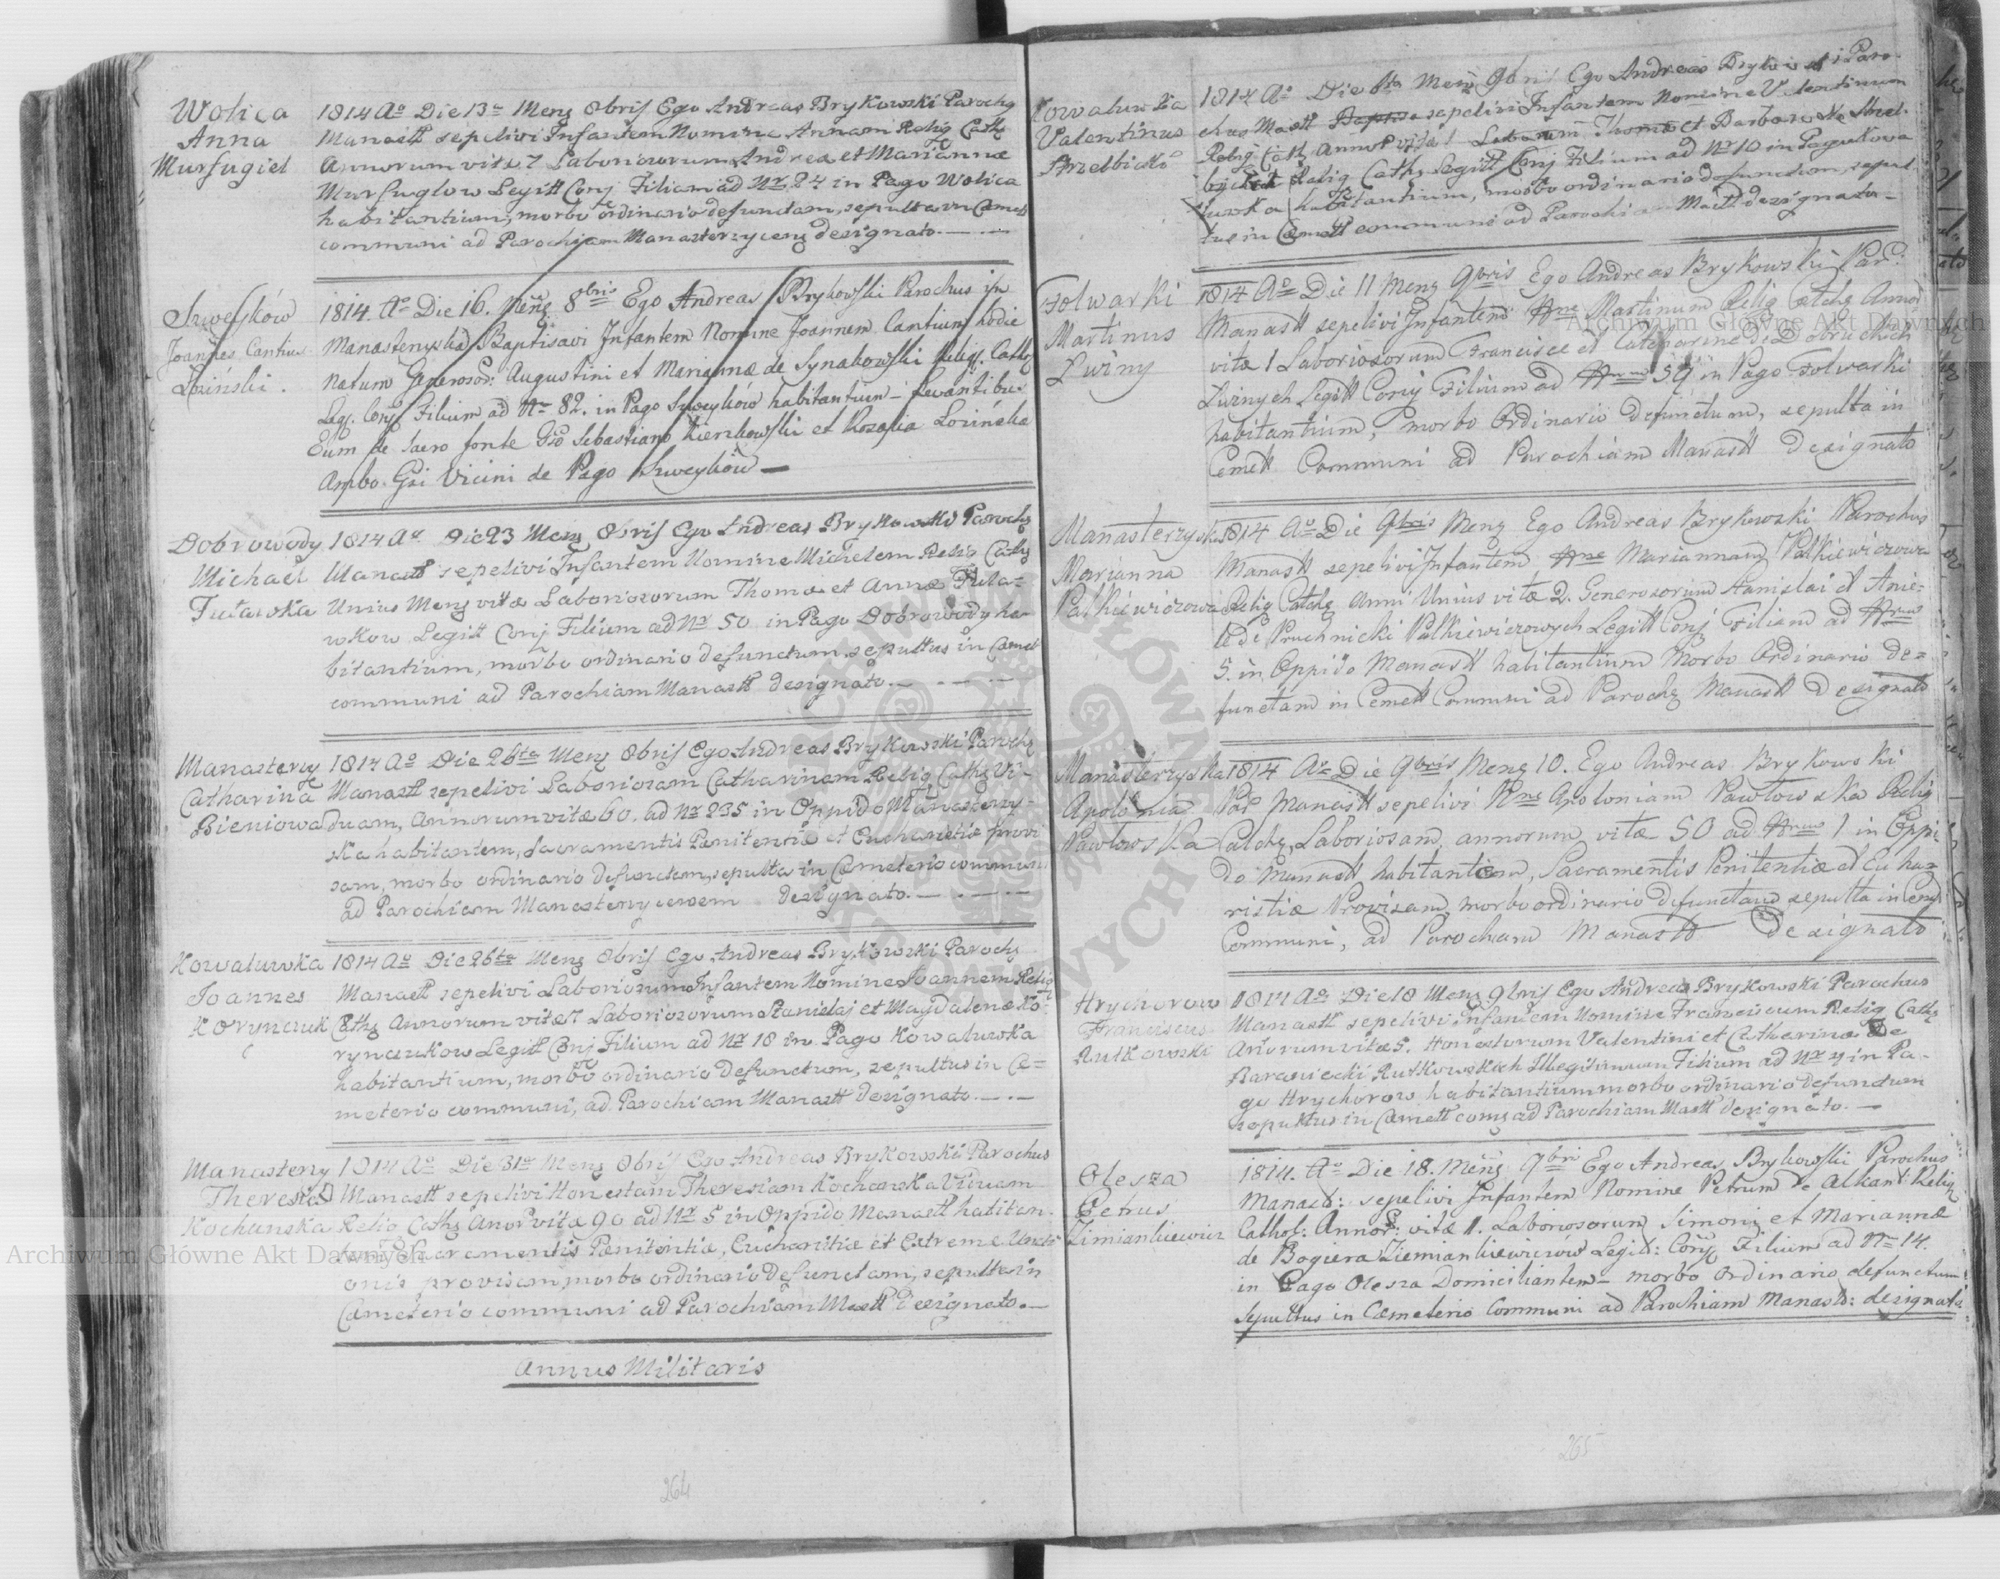 Wolica
Anna
Murfugiel
1814 Ao Die 13a Meng 8bris Ego Andreas Brykowski Parochg
Manastt sepelivi Infantem Nomine Annam Relig Cathg
Annorum vitæ 7 Laboriosorum Andreæ et Mariannæ
Murfuglow Legitt Conj Filiam ad Nr 24 in Pago Wolica
habitantium, morbo ordinario defunctam, sepulta in Cæmet
communi ad Parochiam Manasterzyceng designato.
Szweyków
Joannes Cantius
Łosiński.
1814. Ao Die 16. Meng 8bris Ego Andreas Brykowski Parochus in
Manasterzyska Baptisavi Infantem Nomine Joannem Cantium hodie
natum Generosor: Augustini et Mariannæ de Synakowski Relig. Cathg
Leg. Conj Filium ad Nr 82. in Pago Szweyków habitantium – Levantibus
Eum de Sacro fonte Gso Sebastiano Kierzkowski et Rozalia Łosińska
Ambo Gsi Vicini de Pago Szweyków
Dobrowody
Michael
Tuławska
1814 Ao Die 23 Meng 8bris Ego Andreas Brykowski Parochg
Manastt sepelivi Infantem Nomine Michælem Relig Cathg
Unius Meng vitæ Laboriosorum Thomæ et Annæ Tula=
wkow Legitt Conj Filium ad Nr 50 in Pago Dobrowody ha
bitantium, morbo ordinario defunctum, sepultus in Cæmet
communi ad Parochiam Manastt designato.
Manasterzy
Catharina
Bieniowa
1814 Ao Die 26ta Meng 8bris Ego Andreas Brykowski Parochg
Manastt sepelivi Laboriosam Catharinam Relig Cathg Vi-
duam, Annorum vitæ 60. ad Nr 235 in Oppido Manasterzy-
ska habitantem, Sacramentis Pænitentiæ et Eucharistiæ provi
sam, morbo ordinario defunctam, sepulta in Cæmeterio communi
ad Parochiam Manasterzycensem designato.
Kowalowka
Joannes
Korynczuk
1814 Ao Die 26ta Meng 8bris Ego Andreas Brykowski Parochg
Manastt sepelivi Laboriosum Infantem Nomine Joannem Relig
Cathg Annorum vitæ 7 Laboriosorum Stanislaj et Magdalenæ Ko
rynczukow Legitt Conj Filium ad Nr 18 in Pago Kowaluwka
habitantium, morbo ordinario defunctum, sepultus in Cæ=
meterio communi, ad Parochiam Manastt designato.
Manasterzy
Theresia
Kochanska
1814 Ao Die 31a Meng 8bris Ego Andreas Brykowski Parochus
Manastt sepelivi Honestam Theresiam Kochanska Viduam
Relig Cathg Anor vitæ 90 ad Nr 5 in Oppido Manastt habitan.
tem Sacramentis Pænitentiæ, Eucharistiæ et Extreme Uncti
onis provisam, morbo ordinario defunctam, sepulta in
Cæmeterio communi ad Parochiam Mastt designato.
Annus Militaris
264
Kowaluwka
Valentinus
Strzelbicki
1814 Ao Die Meng 9bris Ego Andreas Brykowski Paro-
chus Mastt sepelivi Infantem Nomine Valentinum
Relig Cathg Annor vitæ 1 Laborium Thomæ et Barbaræ Strzel-
bickich Relig Cathg Legitt Conj Filium ad Nr 10 in Pago Kowa
luwka habitantium, morbo ordinario defunctum, sepul
tus in Cæmett communi ad Parochiam Mastt designato
Folwarki
Martinus
Luziny
1814 Ao Die 11 Meng 9bris Ego Andreas Brykowski Par:
Manastt sepelivi Infantem Nne Martinum Relig Cathg Annor
vitæ 1 Laboriosorum Francisci et Catharine de Dobruckich
Luzinych Legitt Conj Filium ad Nrum 59 in Pago Folwarki
habitantium, morbo Ordinario defunctum, sepulta in
Cemett Communi ad Parochiam Manastt Designato
Manasterzyska
Marianna
Palkiewiczowa
1814 Ao Die 9bris Meng Ego Andreas Brykowski Parochus
Manastt sepelivi Infantem Nne Mariannam Palkiewiczowa
Relig Cathg Anni Unius vitæ 2. Generosorum Stanislai et Anie-
le de Pruchnicki Palkiewiczowych Legitt Conj Filiam ad Nrum
5. in Oppido Manastt habitantium Morbo Ordinario de=
functam in Cemett Communi ad Parochg Manastt Designato
Manasterzyska
Apolonia
Pawlowska
1814 Ao Die 9bris Meng 10. Ego Andreas Brykowski
Par Manastt sepelivi Nne Apoloniam Pawlowska Relig
Cathg, Laboriosam, annorum vitæ 50 ad Nrum 1 in Oppi
do Manastt habitantem, Sacramentis Penitentiæ et Eucha=
ristiæ Provisam, morbo ordinario defunctam sepulta in Cem
Communi, ad Parochiam Manastt Designato
Hrychorow
Franciscus
Rutkowski
1814 Ao Die 18 Meng 9bris Ego Andreas Brykowski Parochus
Manastt sepelivi Infantem Nomine Franciscum Relig Cathg
Anorum vitæ 5. Honestorum Valentini et Catharinæ De
Baraniecki Rutkowskich Illegitimum Filium ad Nr 4 in Pa-
go Hrychorow habitantium morbo ordinario defunctum
sepultus in Cæmett comg ad Parochiam Mastt designato.
Olesza
Petrus
Zimiankiewicz
1814. Ao Die 18. Meng 9bri Ego Andreas Brykowski Parochus
Manast: sepelivi Infantem Nomine Petrum de Alkant: Relig
Cathol: Annor: vitæ 1. Laboriosorum Simoni et Mariannæ
de Bogiera Ziemiankiewiczów Legit: Conj Filium ad Nr 14.
in Pago Olesza Domiciliantem – morbo ordinario defunctum
Sepultus in Cæmeterio Communi ad Parochiam Manast: designato
265
Archiwum Główne Akt Dawnych
Archiwum Główne Akt Dawnych